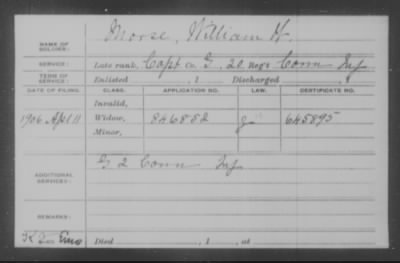 NAME OF SOLDIER: Morse, William H.
SERVICE: Late rank, Capt Co. G, 20 Reg't Conn Inf
TERM OF SERVICE: Enlisted , 1 Discharged , 1
DATE OF FILING. CLASS. APPLICATION NO. LAW. CERTIFICATE NO.
Invalid,
1906 Apl 11 Widow, 846852 645895
Minor,
ADDITIONAL SERVICES: G 2 Conn Inf
REMARKS:
Died , 1 , at